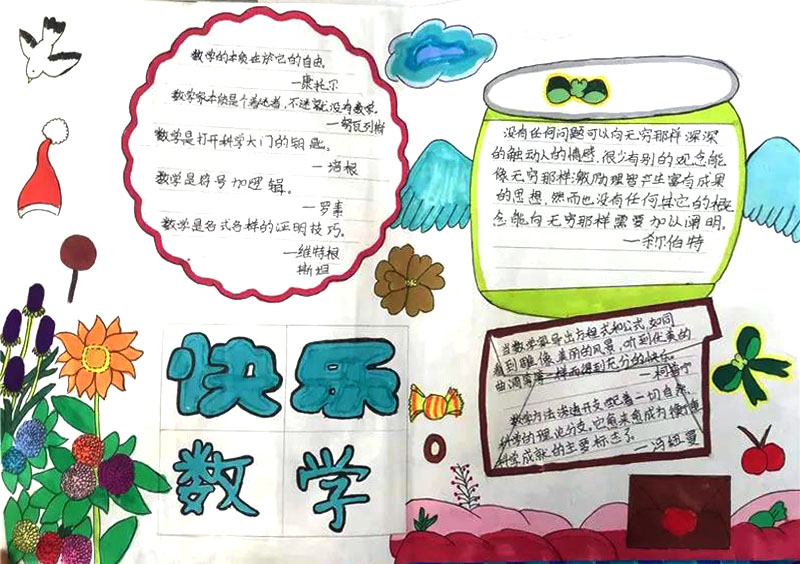 数学的本质在於它的自由。
—康托尔
数学家本质是个着迷者，不迷就没有数学。
—努瓦列斯
数学是打开科学大门的钥匙。
—培根
数学是符号加逻辑。
—罗素
数学是各式各样的证明技巧。
—维特根
斯坦
没有任何问题可以向无穷那样深深
的触动人的情感，很少有别的观念能
像无穷那样激励理智产生富有成果
的思想，然而也没有任何其它的概
念能向无穷那样需要加以阐明。
—希伯特
当数学家导出方程式和公式，如同
看到雕像、美丽的风景，听到优美的
曲调等等一样而得到充分的快乐。
—柯普宁
数学方法渗透并支配着一切自然
科学的理论分支，它愈来愈成为衡量
科学成就的主要标志了。
—冯纽曼
快乐
数学